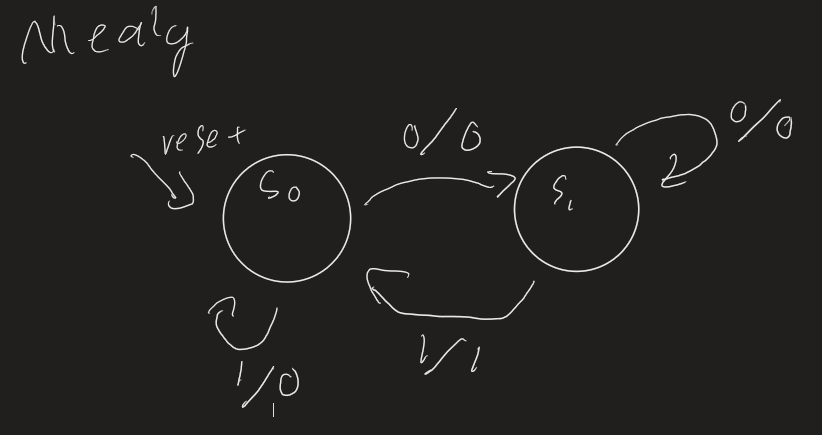 Mealy
reset
S0
0/0
S1
0/0
1/1
1/0